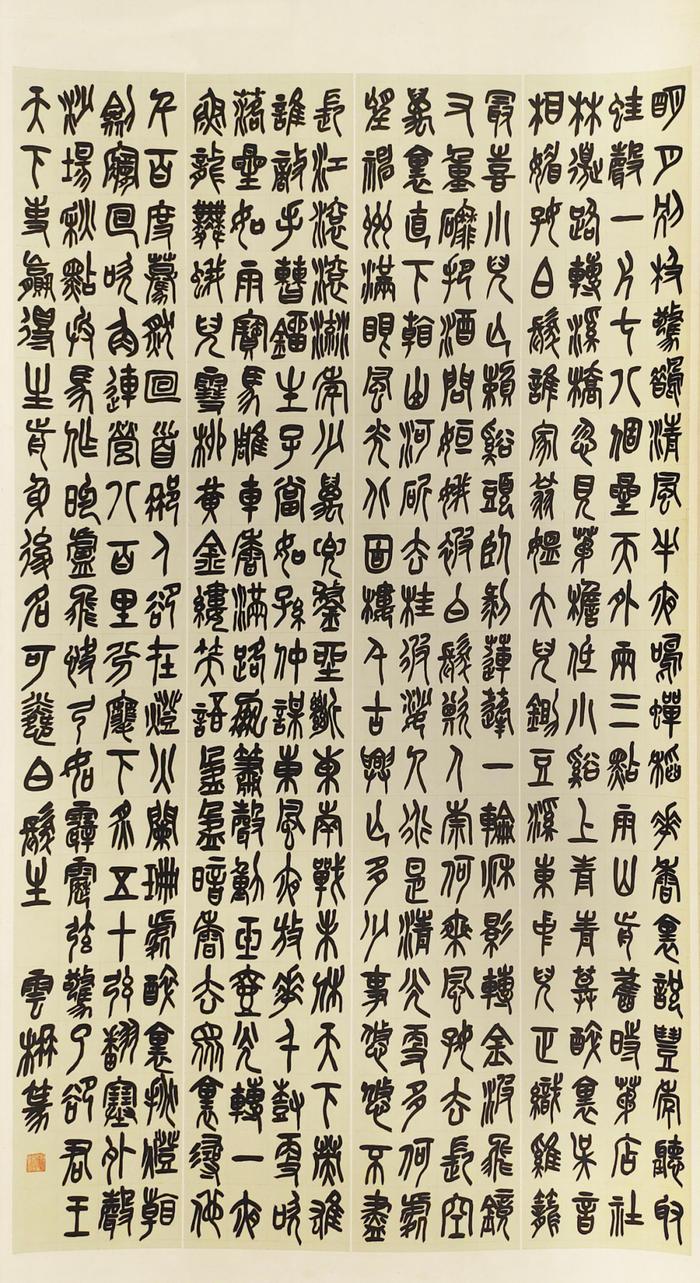 明月别枝驚鵲清風半夜鳴蟬稻花香裏說豐年聽取
蛙聲一片七八個星天外兩三點雨山前舊時茅店社
林邊路轉溪橋忽見茅檐低小溪上青青草醉裏吳音
相媚好白髮誰家翁媼大兒鋤豆溪東中兒正織雞籠
最喜小兒亡賴溪頭臥剝蓮蓬一輪秋影轉金波飛鏡
又重磨把酒問姮娥被白髮欺人奈何乘風好去長空
萬裏直下看山河斫去桂婆娑人道是清光更多何處
望神州滿眼風光北固樓千古興亡多少事悠悠不盡
長江滾滾流年少萬兜鍪坐斷東南戰未休天下英雄
誰敵手曹劉生子當如孫仲謀東風夜放花千樹更吹
落星如雨寶馬雕車香滿路鳳簫聲動玉壺光轉一夜
魚龍舞蛾兒雪柳黃金縷笑語盈盈暗香去眾裏尋他
千百度驀然回首那人卻在燈火闌珊處醉裏挑燈看
劍夢回吹角連營八百里分麾下炙五十弦翻塞外聲
沙場秋點兵馬作的盧飛快弓如霹靂弦驚了卻君王
天下事贏得生前身後名可憐白髮生 雲篆